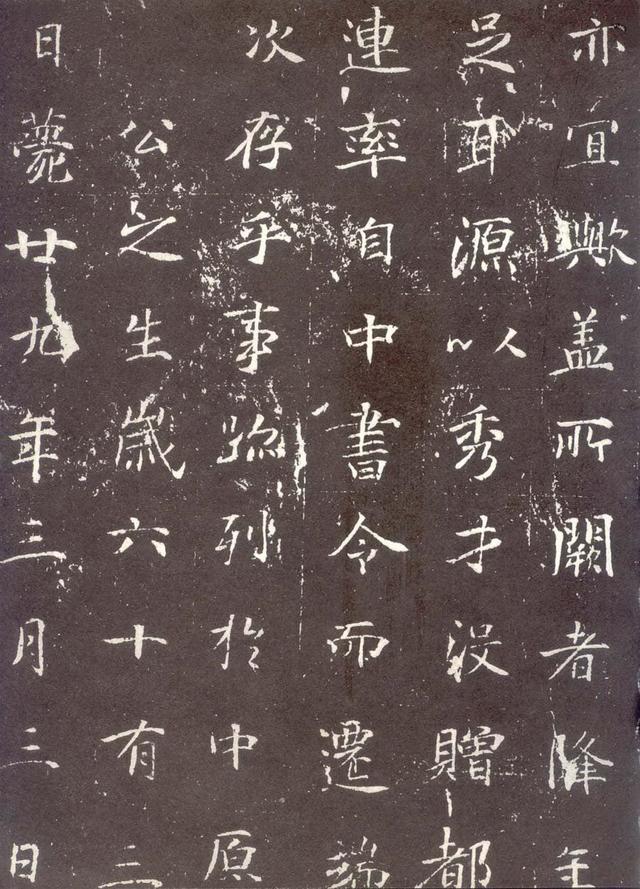 亦宜歟盖所闕者降年
足耳源ハ人秀才没贈都
連率自中書令而遷端
次存乎事跡列於中原
公之生歲六十有三
日薨廿九年三月三日